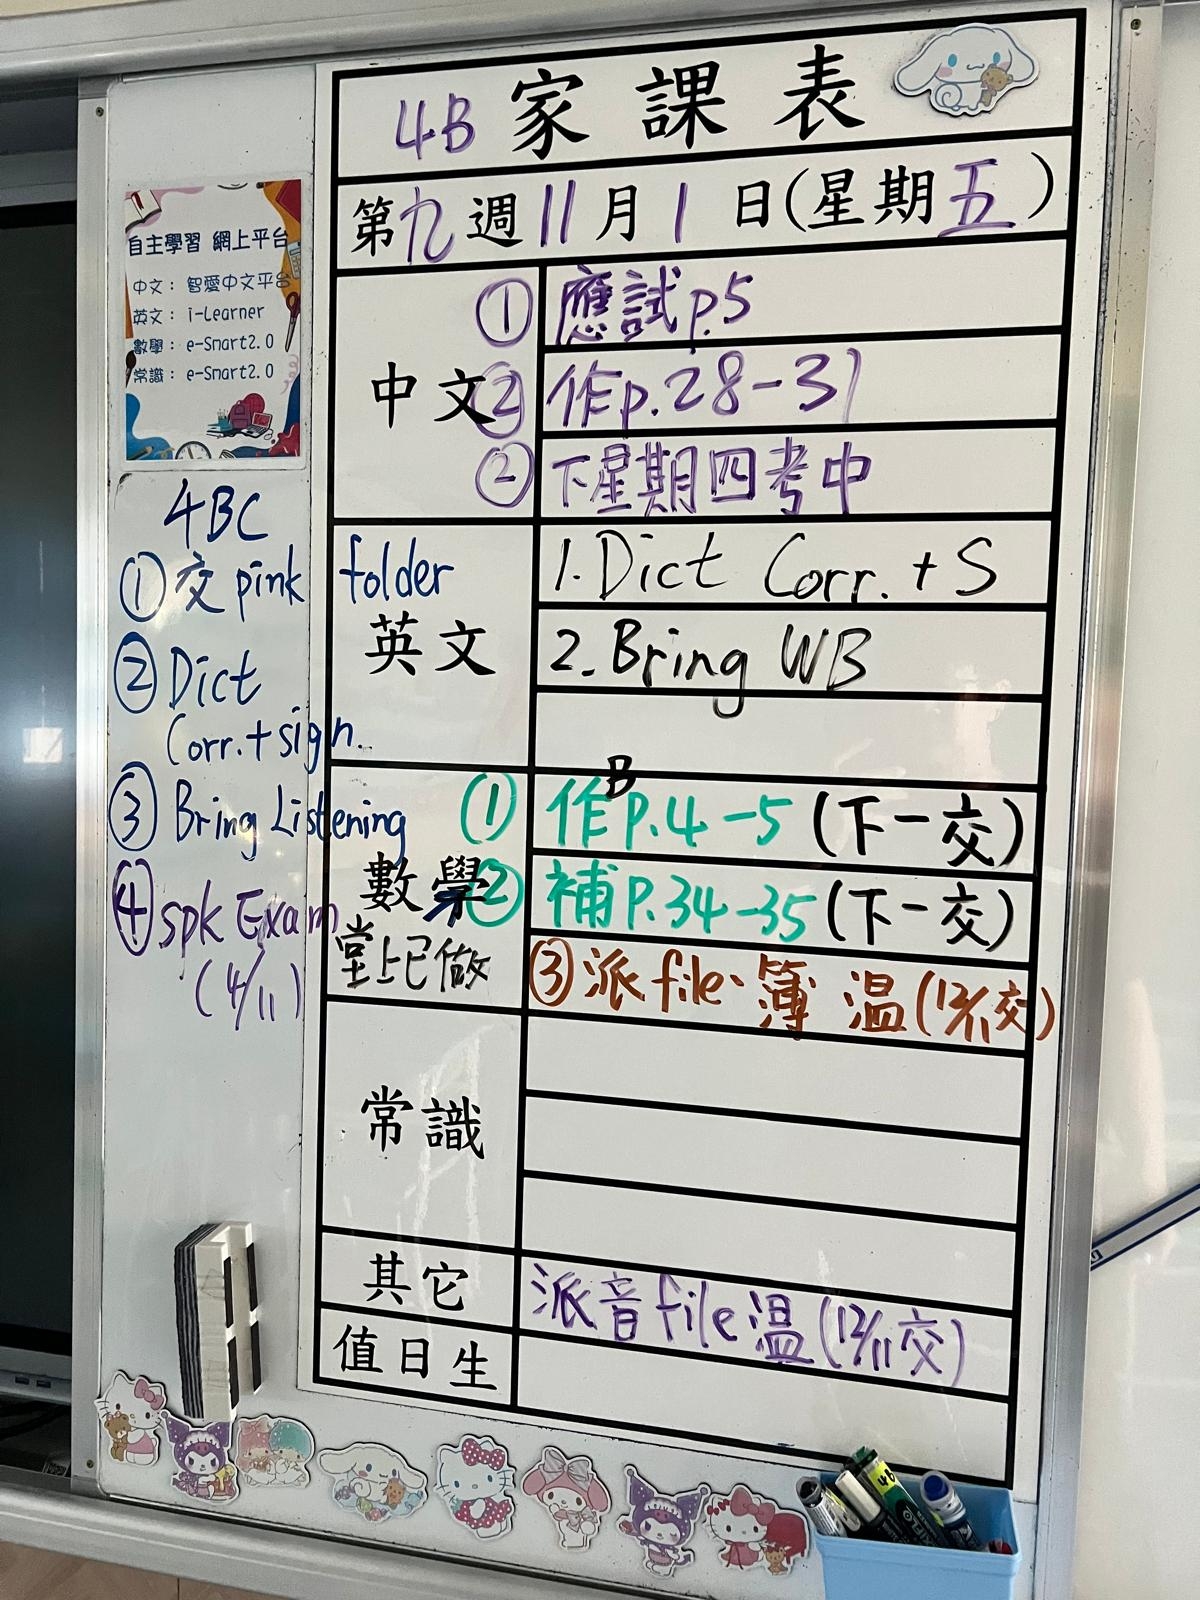 4B 家課表
第九週 11月1日(星期五)
自主學習 網上平台
中文： 智愛中文平台
英文： i-Learner
數學： e-Smart2.0
常識： e-Smart2.0
4BC
① 交 pink folder
② Dict
Corr.+sign.
③ Bring Listening
④ spk Exam
(4/11)
中文
① 應試p.5
② 作p.28-31
② 下星期四考中
英文
1. Dict Corr. + S
2. Bring WB
數學
堂上已做
① 作B P.4-5 (下一交)
② 補P.34-35 (下一交)
③ 派file、簿 溫(12/11交)
常識
其它
派音file溫(12/11交)
值日生